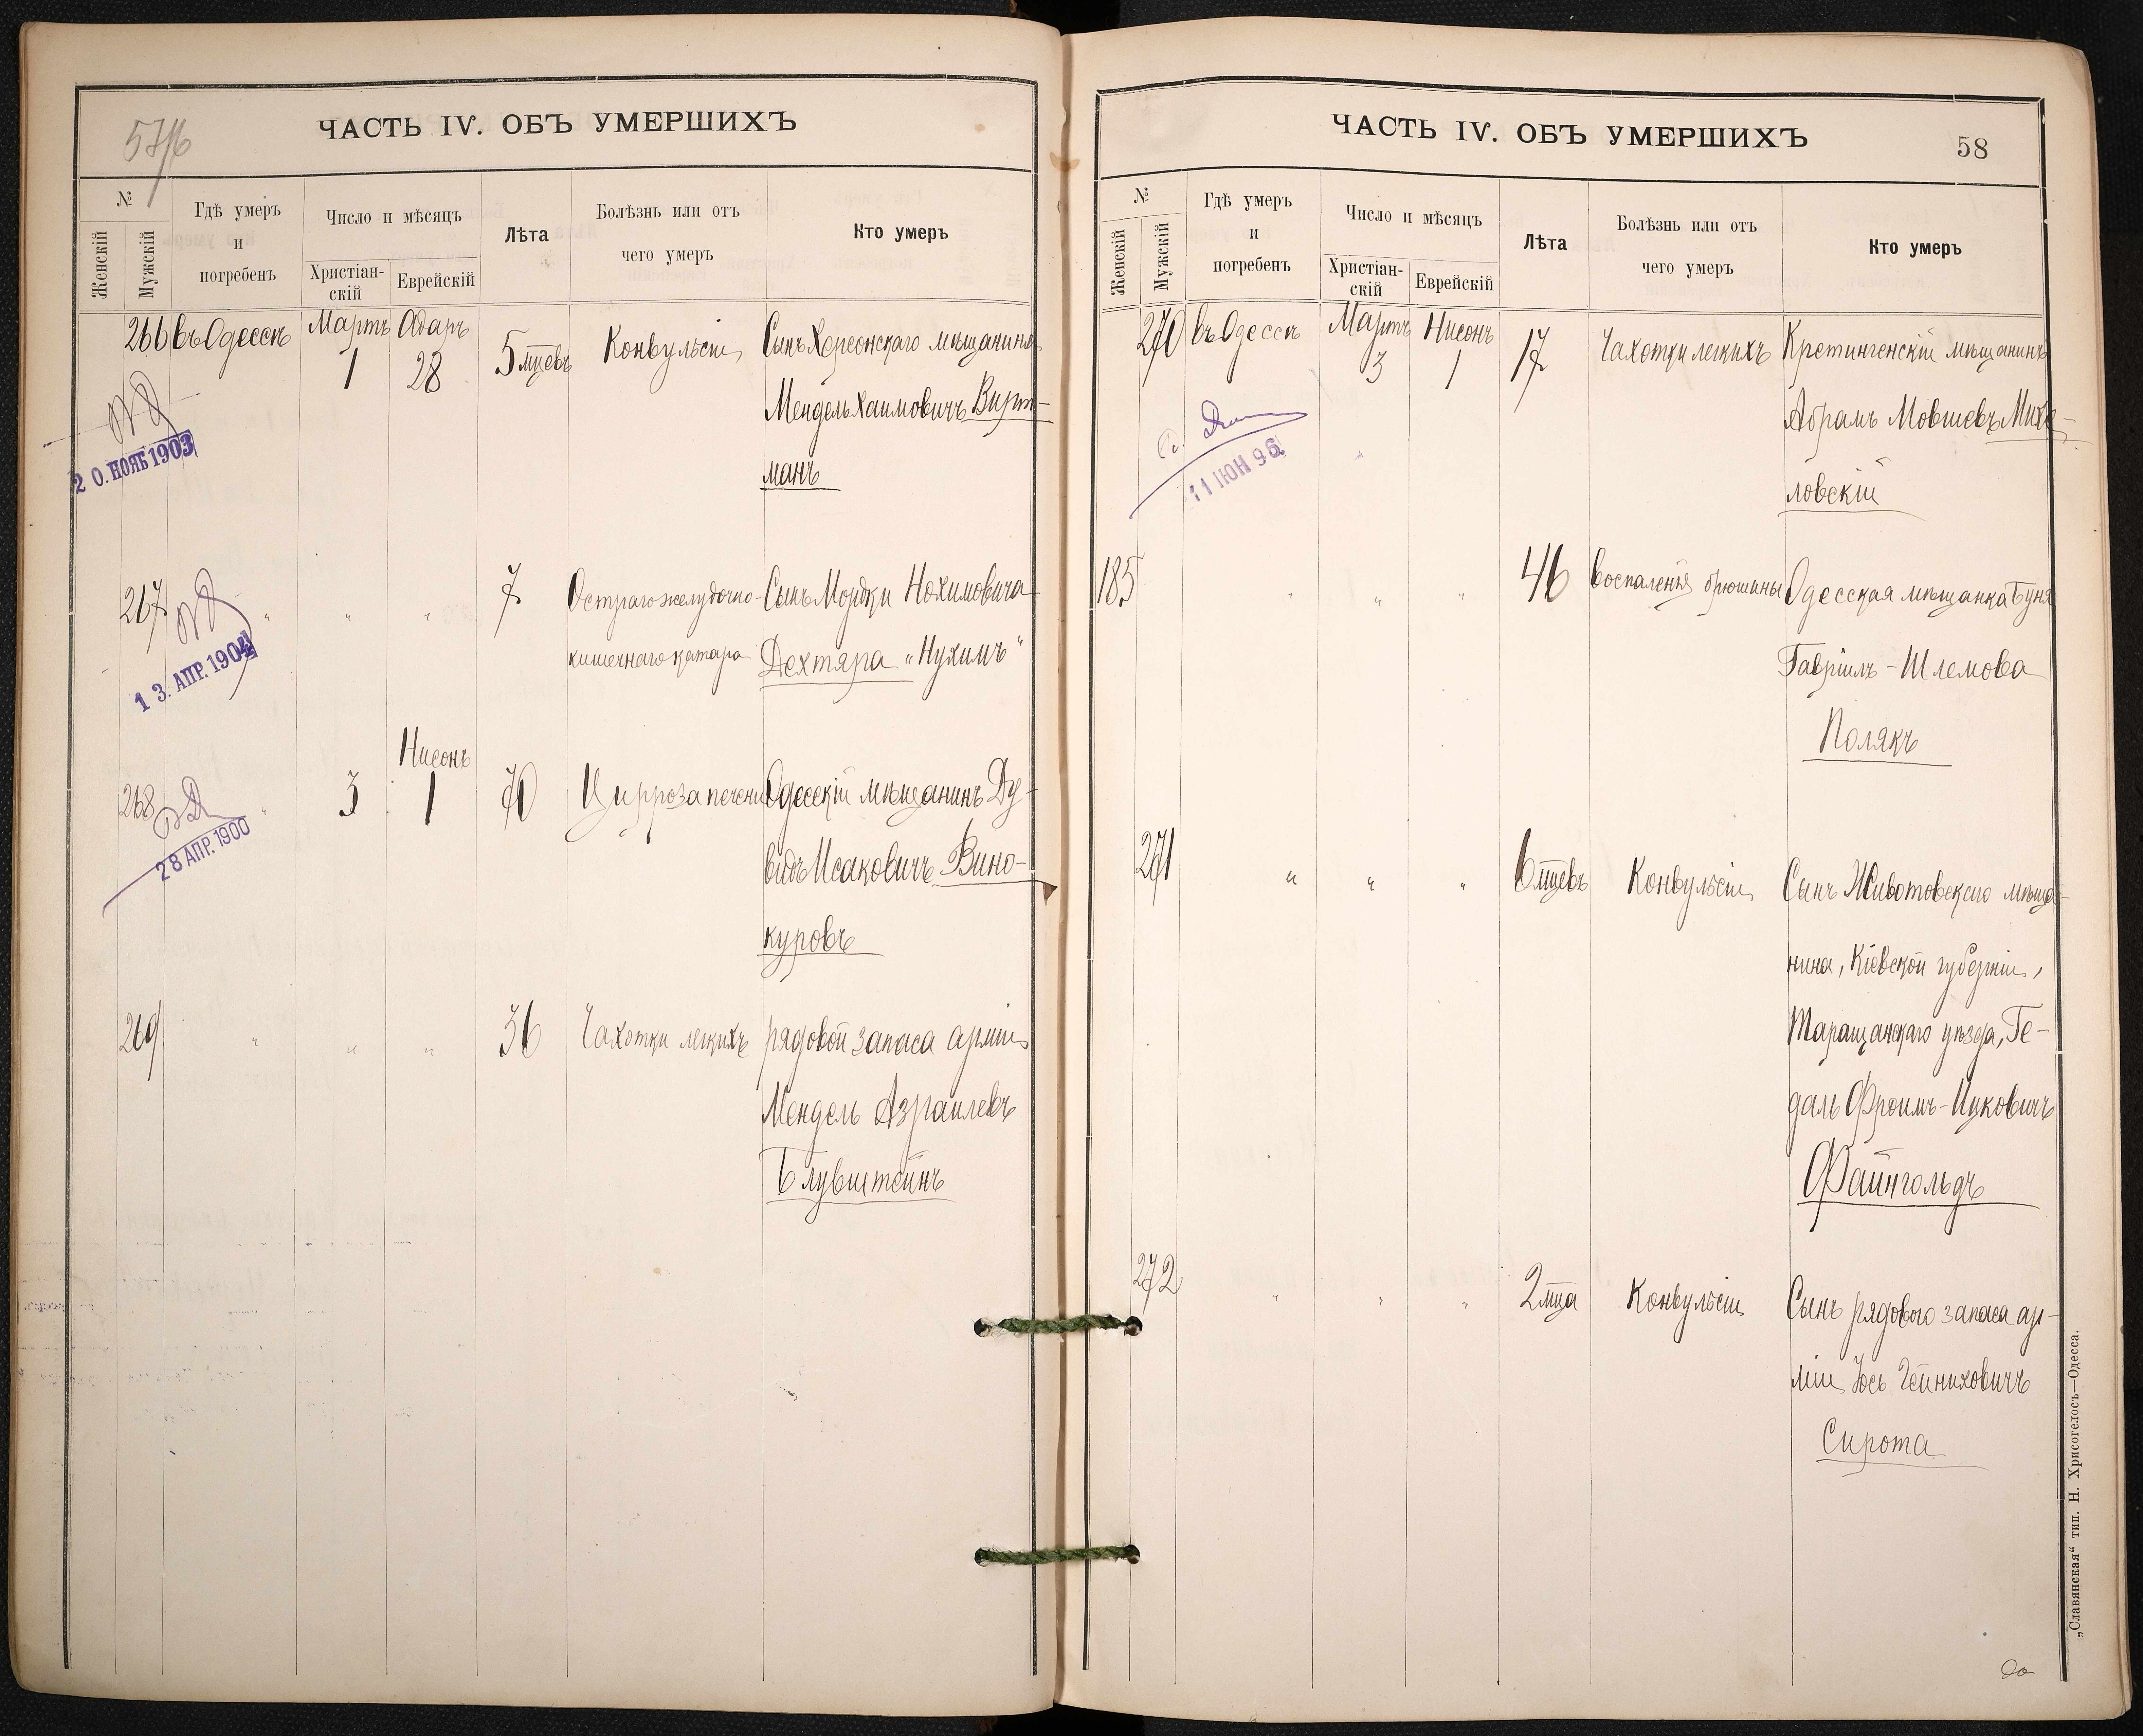 ЧАСТЬ IV. ОБЪ УМЕРШИХЪ
№
Женскій
Мужскій
Гдѣ умеръ
и
погребенъ
Число и мѣсяцъ
Христіан-
скій
Еврейскій
Лѣта
Болѣзнь или отъ
чего умеръ
Кто умеръ
266 въ Одессѣ Мартъ 1 Адаръ 28 5 мцевъ Конвульсіи Сынъ Херсонскаго мѣщанина
Мендель Хаимовичъ Вирт-
манъ
20. НОЯБ 1903
267 " " " 7 Остраго желудочно- Сынъ Мордки Нохимовича
кишечнаго катара Дехтяра „Нухимъ"
13. АПР. 1904
Нисонъ
268 " 3 1 70 Цирроза печени Одесскій мѣщанинъ Ду-
видъ Исаковичъ Вино-
куровъ
28 АПР. 1900
269 " " " 36 Чахотки легкихъ рядовой запаса арміи
Мендель Азраилевъ
Блувштейнъ
ЧАСТЬ IV. ОБЪ УМЕРШИХЪ
58
№
Женскій
Мужскій
Гдѣ умеръ
и
погребенъ
Число и мѣсяцъ
Христіан-
скій
Еврейскій
Лѣта
Болѣзнь или отъ
чего умеръ
Кто умеръ
270 въ Одессѣ Мартъ 3 Нисонъ 1 17 Чахотки легкихъ Кретингенскій мѣщанинъ
Абрамъ Мовшевъ Михе-
ловскій
11 ІЮН 96
185 " " " 46 Воспаленія брюшины Одесская мѣщанка Буня
Гавріилъ-Шлемова
Полякъ
271 " " " 6 мцевъ Конвульсіи Сынъ Животовскаго мѣща-
нина, Кіевской губерніи,
Таращанскаго уѣзда, Ге-
даль Фроимъ-Ицковичъ
Файнгольдъ
272 " " " 2 мца Конвульсіи Сынъ рядового запаса ар-
міи Іось Гейниховичъ
Сирота
„Славянская“ тип. Н. Хрисогелосъ—Одесса.